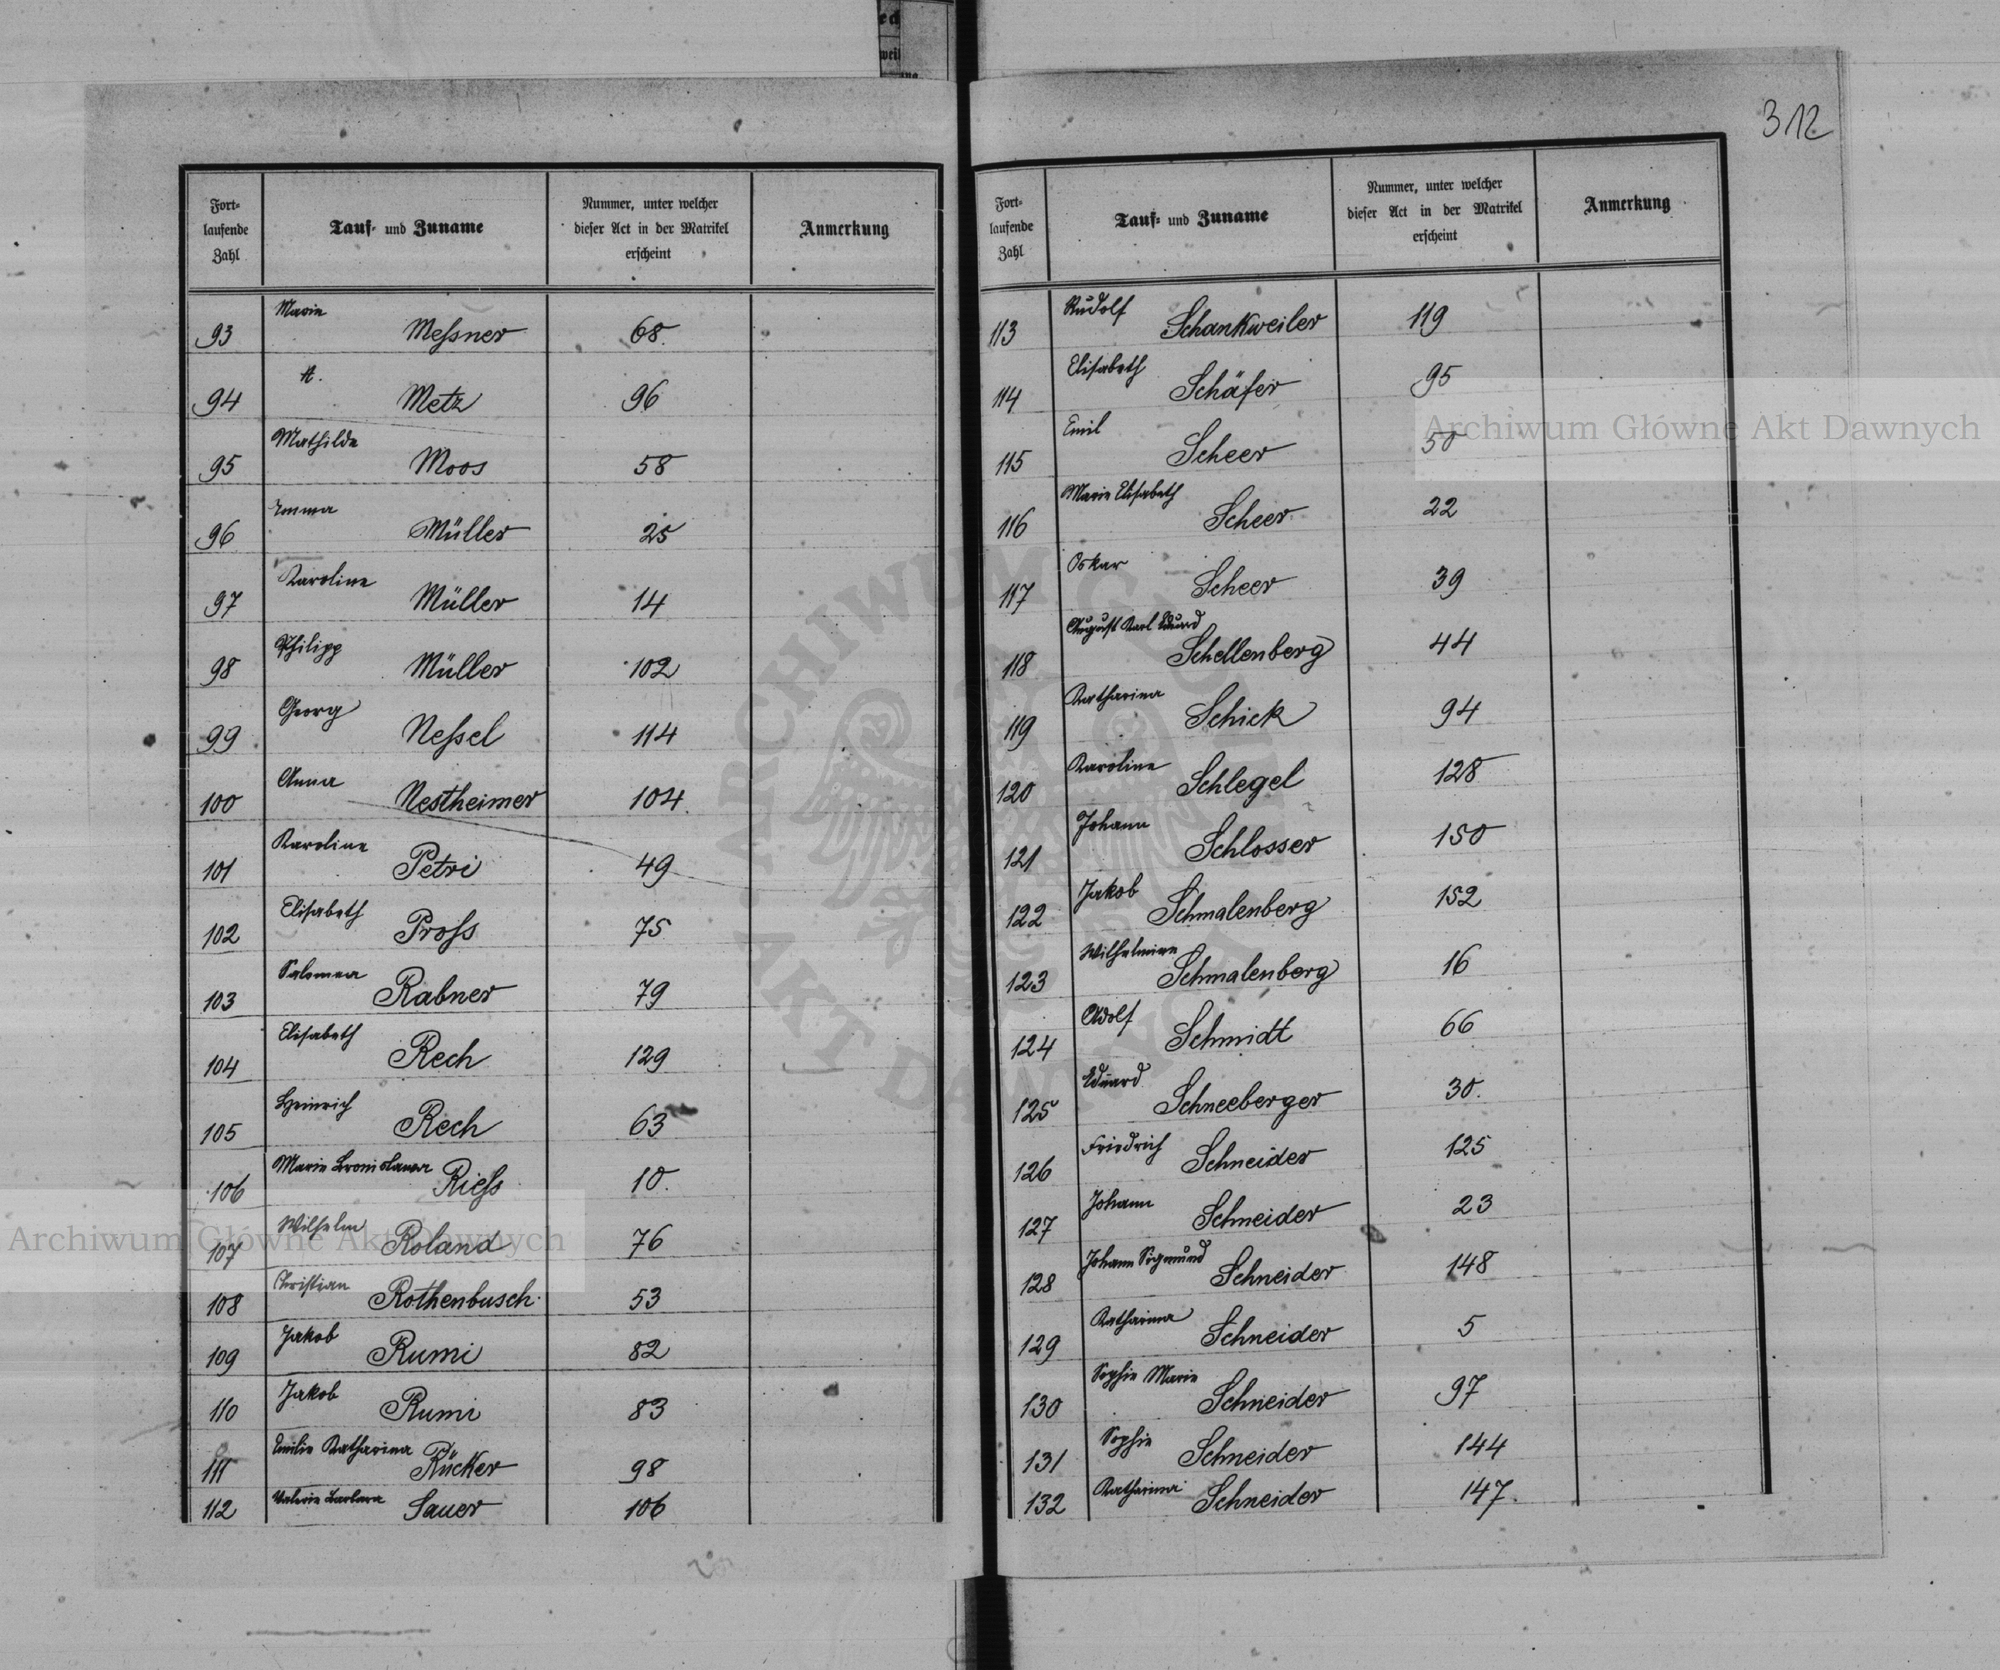 312
Fort-
laufende
Zahl
Tauf- und Zuname
Nummer, unter welcher
dieser Act in der Matrikel
erscheint
Anmerkung
93 Marie Meſsner 68.
94 A. Metz 96
95 Mathilde Moos 58
96 Emma Müller 25
97 Karoline Müller 14
98 Philipp Müller 102
99 Georg Neſsel 114
100 Anna Nestheimer 104.
101 Karoline Petri 49
102 Elisabeth Proſs 75
103 Salomea Rabner 79
104 Elisabeth Rech 129
105 Heinrich Rech 63
106 Marie Bronislawa Rieſs 10.
107 Wilhelm Roland 76
108 Christian Rothenbusch 53
109 Jakob Rumi 82
110 Jakob Rumi 83
111 Emilie Katharina Rücker 98
112 Valerie Barbara Sauer 106
Fort-
laufende
Zahl
Tauf- und Zuname
Nummer, unter welcher
dieser Act in der Matrikel
erscheint
Anmerkung
113 Rudolf Schankweiler 119
114 Elisabeth Schäfer 95
115 Emil Scheer 50
116 Marie Elisabeth Scheer 22
117 Oskar Scheer 39
118 August Karl Eduard Schellenberg 44
119 Katharina Schick 94
120 Karoline Schlegel 128
121 Johann Schlosser 150
122 Jakob Schmalenberg 152
123 Wilhelmine Schmalenberg 16
124 Adolf Schmidt 66
125 Eduard Schneeberger 30.
126 Friedrich Schneider 125
127 Johann Schneider 23
128 Johann Sigmund Schneider 148
129 Katharina Schneider 5
130 Sophie Marie Schneider 97
131 Sophie Schneider 144
132 Katharina Schneider 147.
Archiwum Główne Akt Dawnych
Archiwum Główne Akt Dawnych
ARCHIWUM GŁÓWNE AKT DAWNYCH